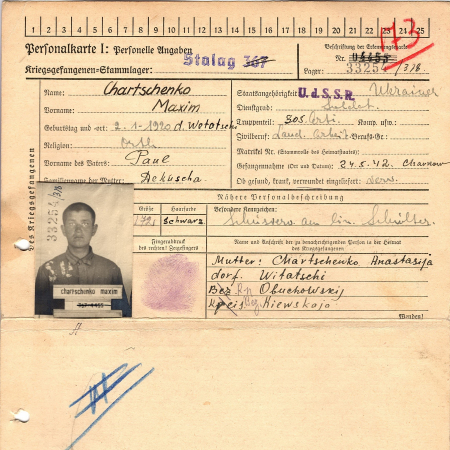 1 2 3 4 5 6 7 8 9 10 11 12 13 14 15 16 17 18 19 20 21 22 23 24 25
173
Personalkarte I: Personelle Angaben
Kriegsgefangenen-Stammlager: Stalag 367
Beschriftung der Erkennungsmarke
Nr.
Lager: 33254/318
Des Kriegsgefangenen
Name: Chartschenko
Vorname: Maxim
Geburtstag und -ort: 2.1.1920 d. Wotatschi
Religion: Orth.
Vorname des Vaters: Paul
Familienname der Mutter: Dekuscha
Staatsangehörigkeit: U.d.S.S.R. Ukrainer
Dienstgrad: Soldat
Truppenteil: 305. Arti.
Zivilberuf: Land. Arbeit. Berufs-Gr.:
Matrikel Nr. (Stammrolle des Heimatstaates):
Gefangennahme (Ort und Datum): 24.5.42. Charkow
Ob gesund, krank, verwundet eingeliefert: verw.
Nähere Personalbeschreibung
Größe
Haarfarbe
Besondere Kennzeichen:
Schwarz
am lin. Schulter.
Fingerabdruck
des rechten! Zeigefingers
Name und Anschrift der zu benachrichtigenden Person in der Heimat
des Kriegsgefangenen
Mutter: Chartschenko Anastasija
dorf. Witatschi
Bez. Rp. Obuchowskij
Kreis. Bez. Kiewskaja
Wenden!
33254/318
chartschenko maxim